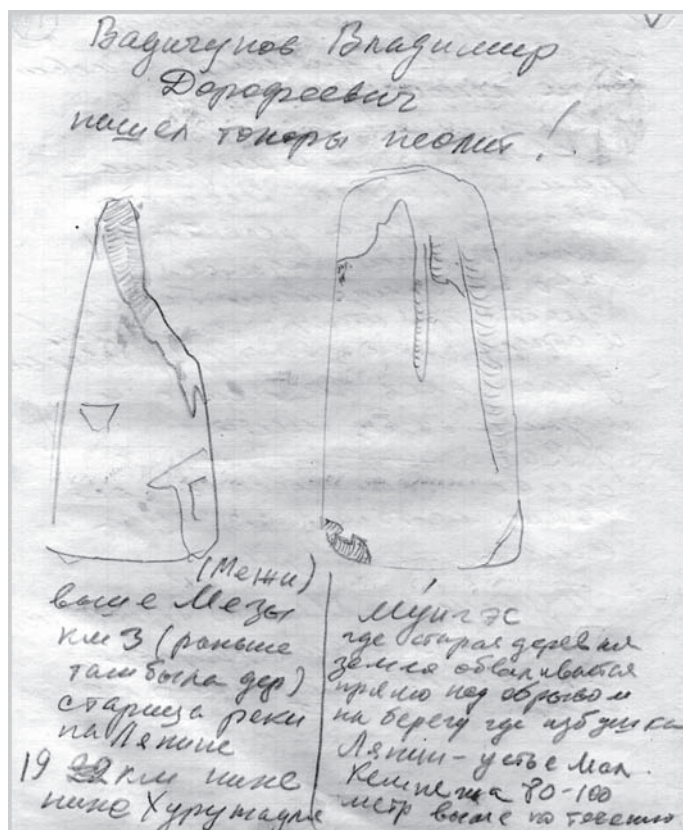 Вадичупов Владимир
Дорофеевич
нашел топоры неолит!
(Межи)
выше Мезы
км 3 (раньше
там была дер)
старица реки
на Ляпине
19 км ниже
ниже Хурумпауля
Му́нгэс
где старая деревня
земля обваливается
прямо под обрывом
на берегу где избушка
Ляпин - устье Мал.
80-100
метр выше по течению